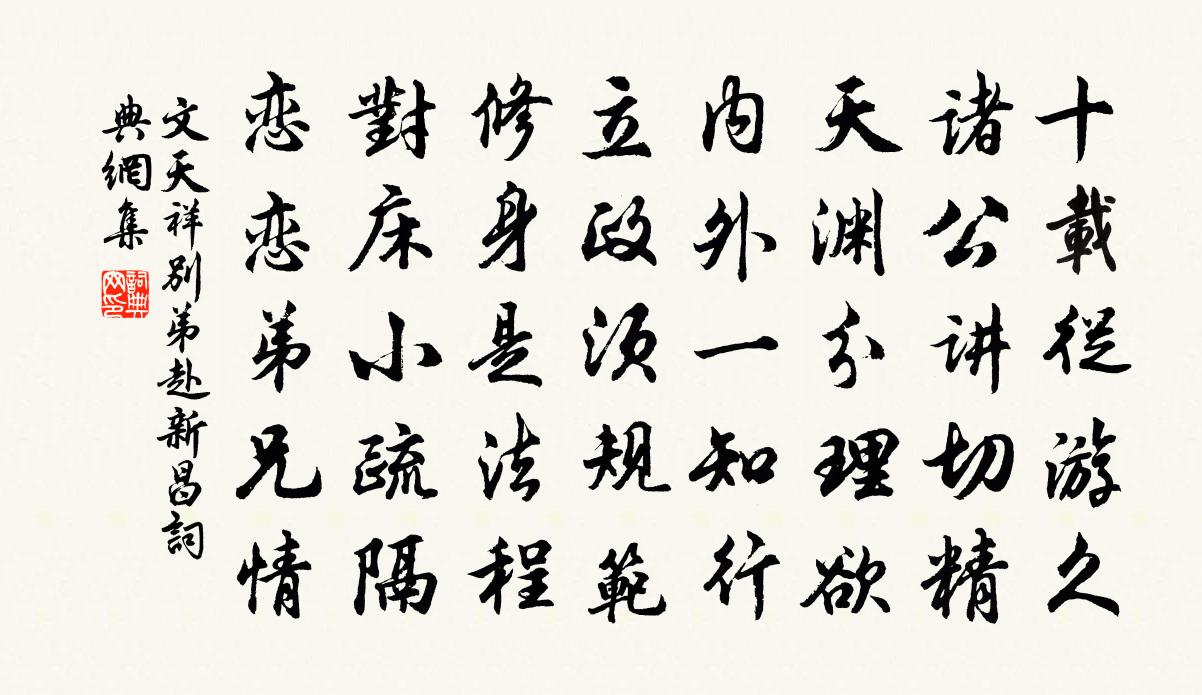 十載從游久
諸公讲切精
天渊分理欲
内外一知行
立政須規範
修身是法程
對床小疏隔
恋恋弟兄情
文天祥别弟赴新昌詞
典網集
詞典网印